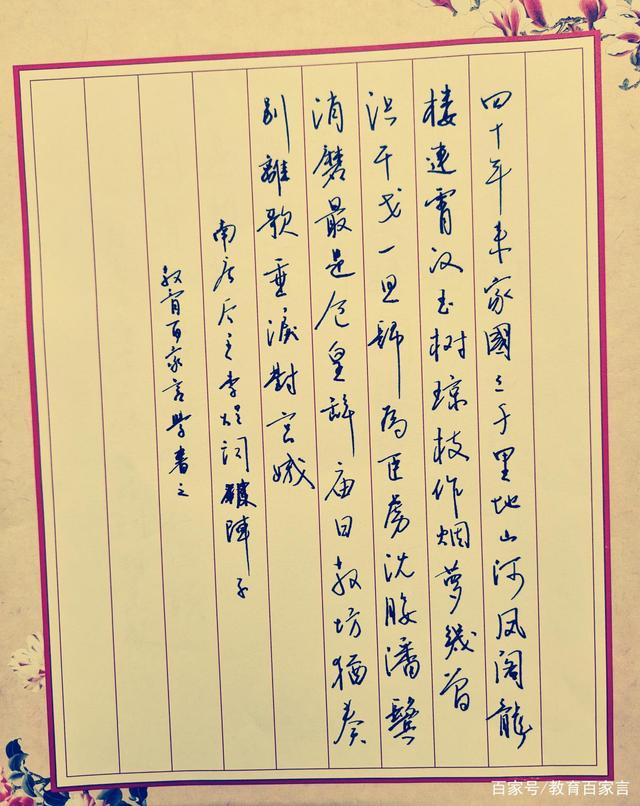 四十年来家國三千里地山河凤阁龍
楼連霄汉玉树琼枝作烟萝幾曾
识干戈一旦歸為臣虜沈腰潘鬓
消磨最是仓皇辞庙日教坊猶奏
别離歌垂淚對宫娥
南唐后主李煜词破陣子
教育百家言學書之
百家号/教育百家言